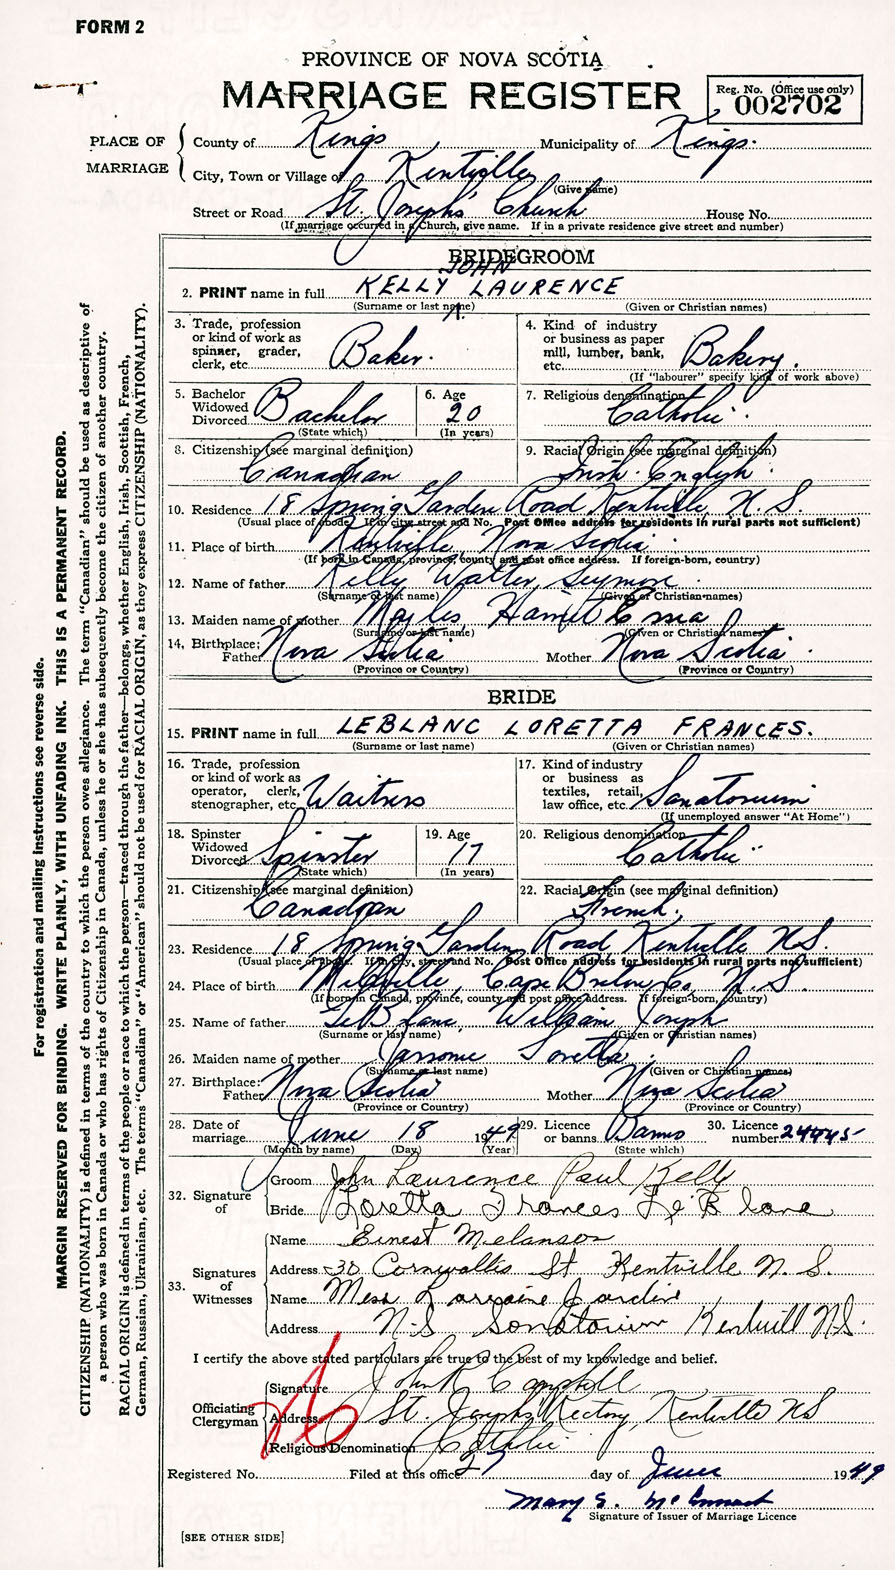 FORM 2
PROVINCE OF NOVA SCOTIA
MARRIAGE REGISTER
Reg. No. (Office use only)
002702
PLACE OF MARRIAGE
County of Kings Municipality of Kings.
City, Town or Village of Kentville
(Give name)
Street or Road St. Joseph's Church House No.
(If marriage occurred in a Church, give name. If in a private residence give street and number)
BRIDEGROOM
JOHN
2. PRINT name in full KELLY LAURENCE
(Surname or last name) (Given or Christian names)
3. Trade, profession or kind of work as spinner, grader, clerk, etc. Baker.
4. Kind of industry or business as paper mill, lumber, bank, etc. Bakery.
(If "labourer" specify kind of work above)
5. Bachelor Widowed Divorced Bachelor
(State which)
6. Age 20
(In years)
7. Religious denomination Catholic.
8. Citizenship (see marginal definition) Canadian
9. Racial Origin (see marginal definition) Irish-English.
10. Residence 18 Spring Garden Road Kentville, N.S.
(Usual place of abode. If in city, street and No. Post Office address for residents in rural parts not sufficient)
11. Place of birth Kentville, Nova Scotia.
(If born in Canada, province, county and post office address. If foreign-born, country)
12. Name of father Kelly Walter Seymore.
(Surname or last name) (Given or Christian names)
13. Maiden name of mother
(Surname or last name) (Given or Christian names)
14. Birthplace: Father Nova Scotia Mother Nova Scotia.
(Province or Country) (Province or Country)
BRIDE
15. PRINT name in full LEBLANC LORETTA FRANCES.
(Surname or last name) (Given or Christian names)
16. Trade, profession or kind of work as operator, clerk, stenographer, etc. Waitress
17. Kind of industry or business as textiles, retail, law office, etc. Sanatorium
(If unemployed answer "At Home")
18. Spinster Widowed Divorced Spinster
(State which)
19. Age 17
(In years)
20. Religious denomination Catholic
21. Citizenship (see marginal definition) Canadian
22. Racial Origin (see marginal definition) French.
23. Residence 18 Spring Garden Road, Kentville N.S.
(Usual place of abode. If in city, street and No. Post Office address for residents in rural parts not sufficient)
24. Place of birth Cape Breton Co, N.S.
(If born in Canada, province, county and post office address. If foreign-born, country)
25. Name of father LeBlanc, William Joseph
(Surname or last name) (Given or Christian names)
26. Maiden name of mother Loretta.
(Surname or last name) (Given or Christian names)
27. Birthplace: Father Nova Scotia Mother Nova Scotia
(Province or Country) (Province or Country)
28. Date of marriage June 18 1949
(Month by name) (Day) (Year)
29. Licence or banns Banns
(State which)
30. Licence number 24445
32. Signature of
Groom John Laurence Paul Kelly
Bride Loretta Frances LeBlanc
33. Signatures of Witnesses
Name Ernest Melanson
Address 30 Cornwallis St Kentville N.S.
Name Lorraine Jardine
Address N-S Sonatorium Kentvill N.S.
I certify the above stated particulars are true to the best of my knowledge and belief.
Officiating Clergyman
Signature John R Campbell
Address St. Joseph's Rectory, Kentville NS
Religious Denomination Catholic
Registered No. Filed at this office 27 day of June 1949
Mary E. McCormack
Signature of Issuer of Marriage Licence
[SEE OTHER SIDE]
For registration and mailing instructions see reverse side.
MARGIN RESERVED FOR BINDING. WRITE PLAINLY, WITH UNFADING INK. THIS IS A PERMANENT RECORD.
CITIZENSHIP (NATIONALITY) is defined in terms of the country to which the person owes allegiance. The term "Canadian" should be used as descriptive of
a person who was born in Canada or who has rights of Citizenship in Canada, unless he or she has subsequently become the citizen of another country.
RACIAL ORIGIN is defined in terms of the people or race to which the person—traced through the father—belongs, whether English, Irish, Scottish, French,
German, Russian, Ukrainian, etc. The terms "Canadian" or "American" should not be used for RACIAL ORIGIN, as they express CITIZENSHIP (NATIONALITY).